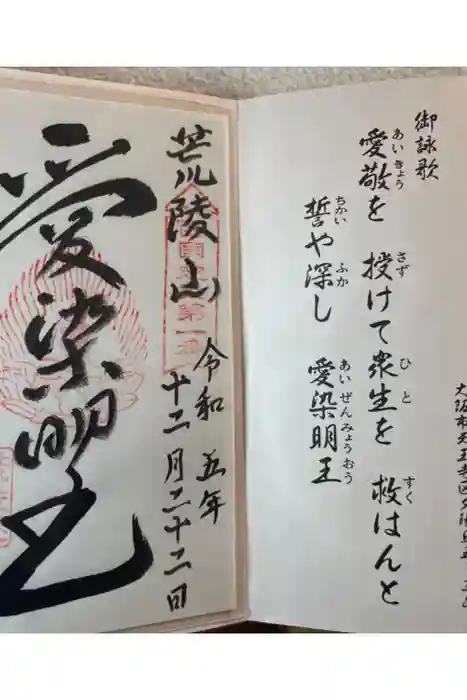 大阪市天王寺区夕陽丘町
御詠歌
愛敬を 授けて衆生を 救はんと
あいきょう さず ひと すく
誓や深し 愛染明王
ちかい ふか あいぜんみょうおう
荒陵山
西国 第一番
令和五年
十二月二十二日
愛染明王